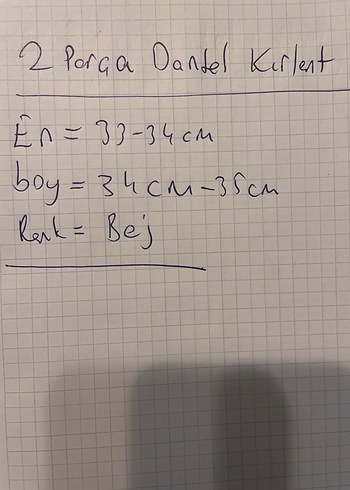 2 Parça Dantel Kırlent
En = 33-34cm
boy = 34cm-35cm
Renk = Bej